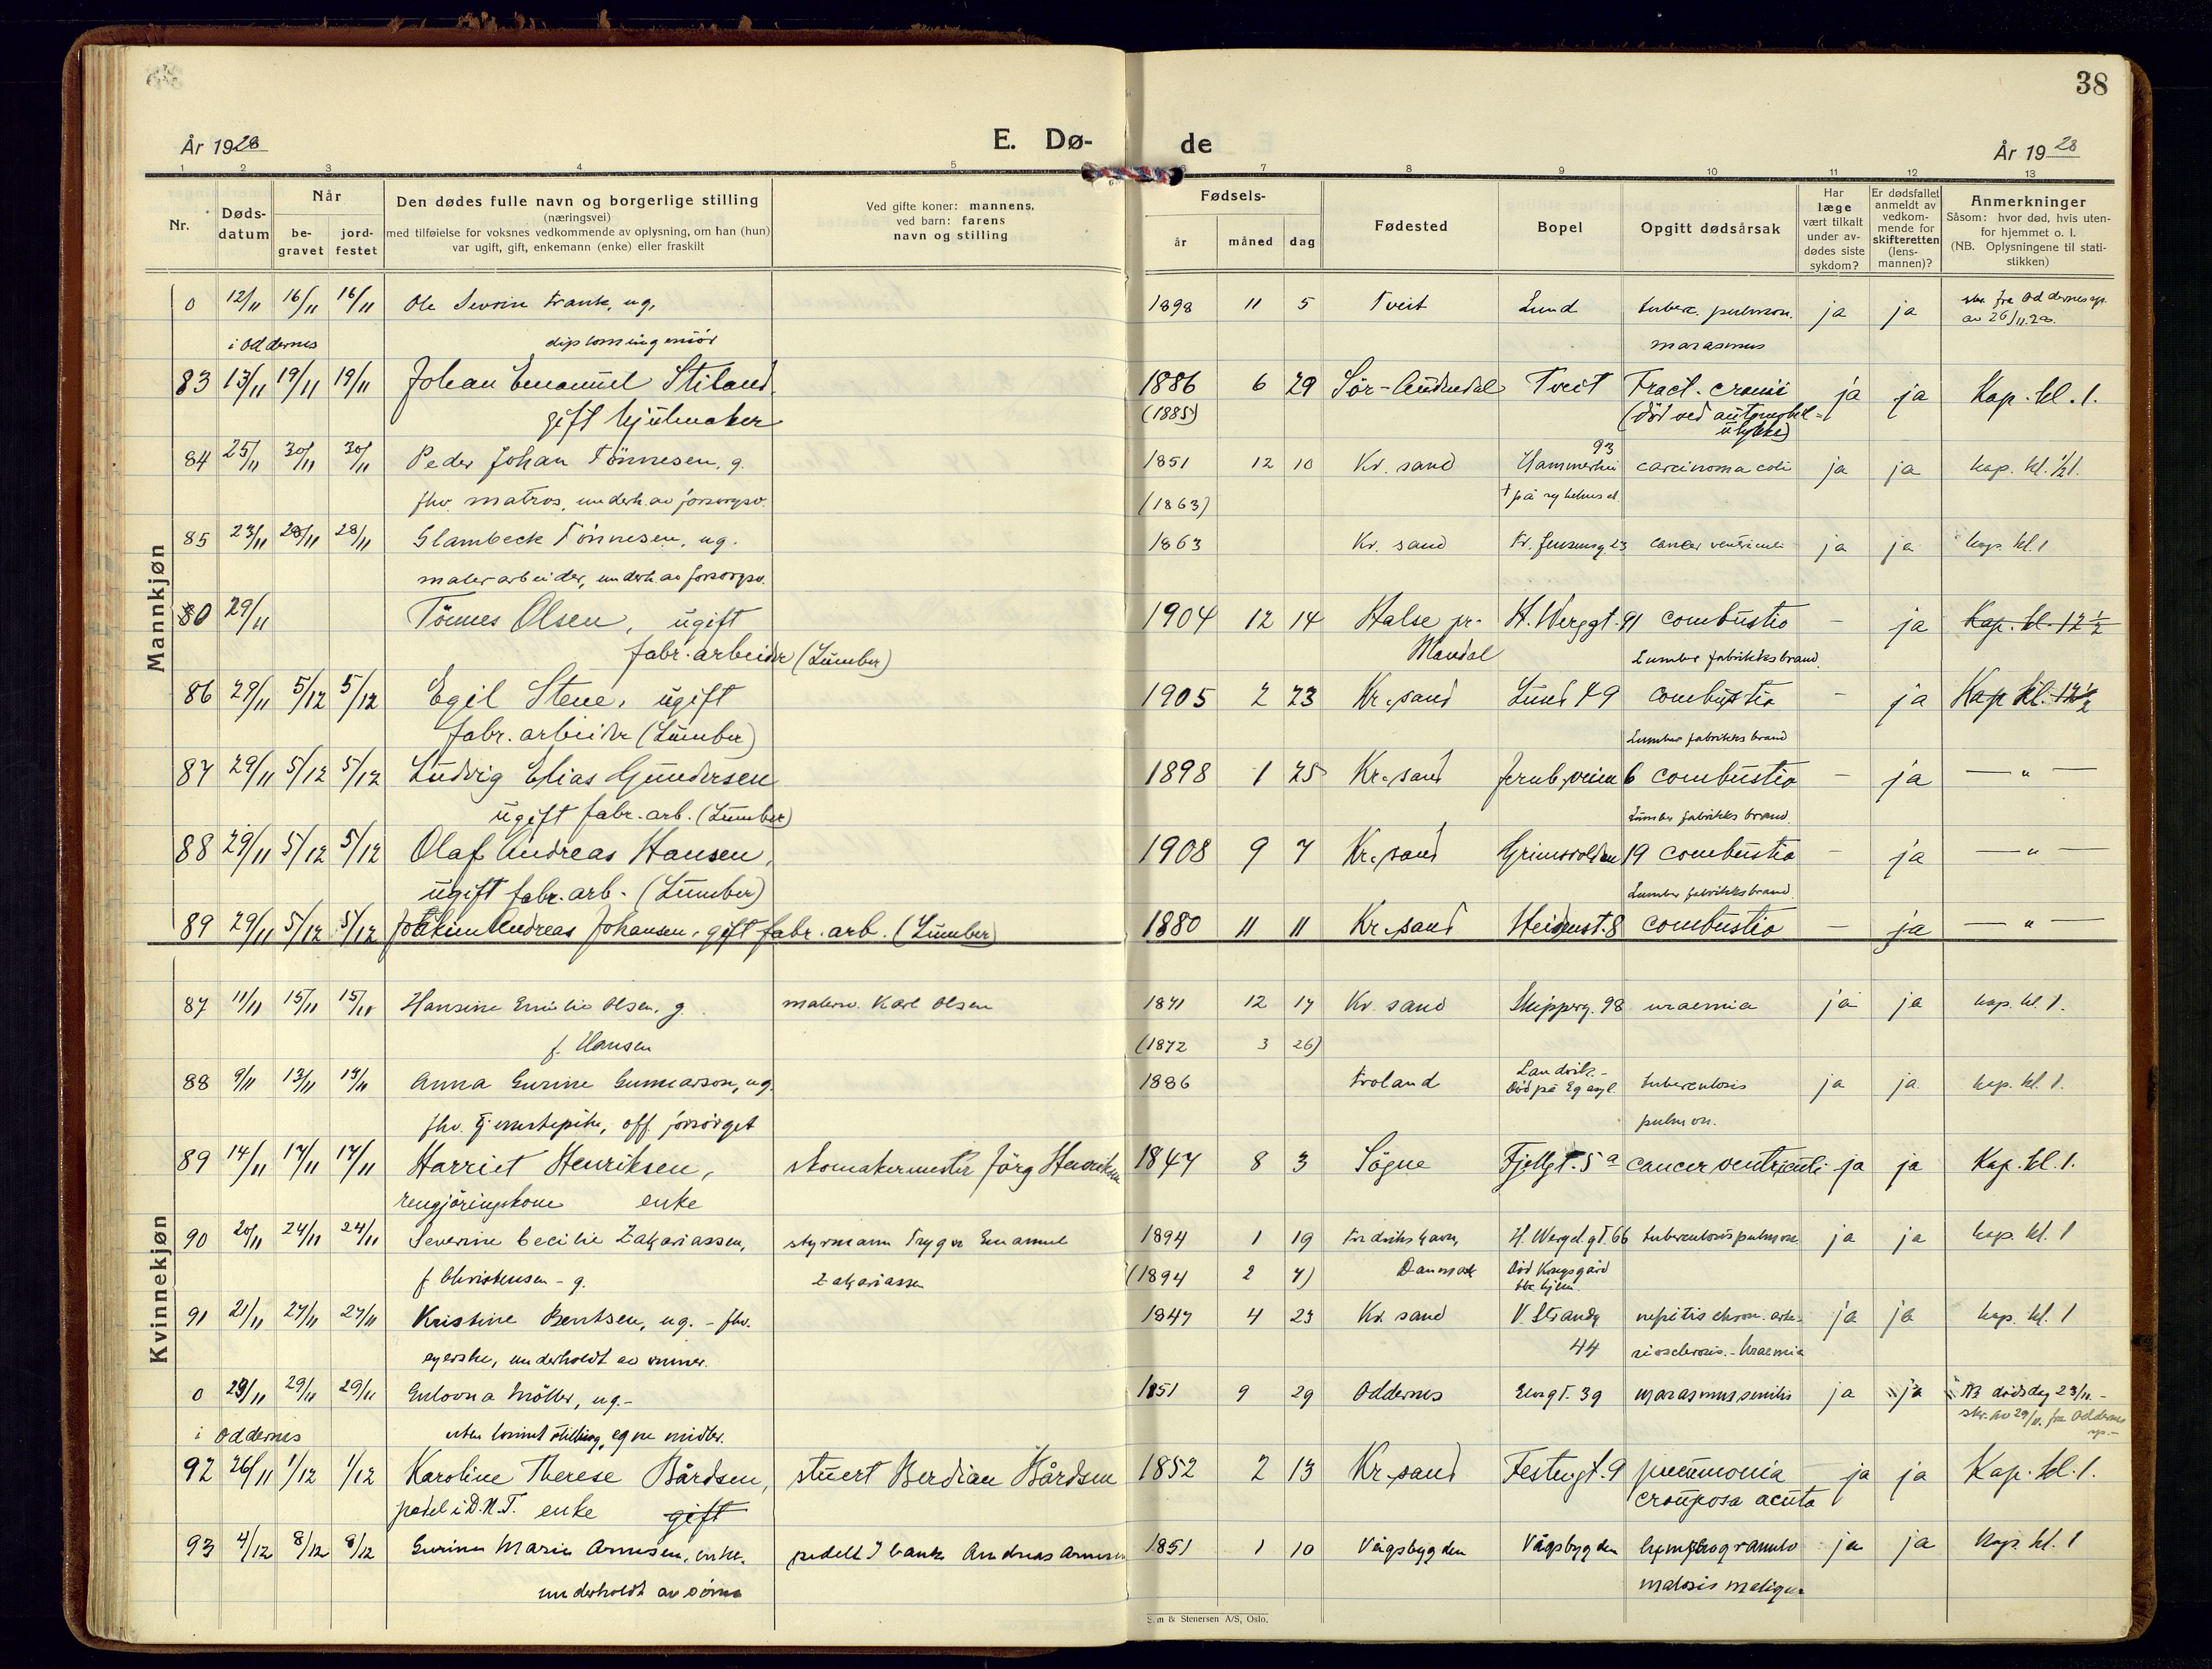 38
År 1928
E. Dø-
de
År 1928
1 2 3 4 5 6 7 8 9 10 11 12 13
Nr.
Døds-
datum
Når
be-
gravet
jord-
festet
Den dødes fulle navn og borgerlige stilling
(næringsvei)
med tilføielse for voksnes vedkommende av oplysning, om han (hun)
var ugift, gift, enkemann (enke) eller fraskilt
Ved gifte koner: mannens,
ved barn: farens
navn og stilling
Fødsels-
år måned dag
Fødested
Bopel
Opgitt dødsårsak
Har
læge
vært tilkalt
under av-
dødes siste
sykdom?
Er dødsfallet
anmeldt av
vedkom-
mende for
skifteretten
(lens-
mannen)?
Anmerkninger
Såsom: hvor død, hvis uten-
for hjemmet o. l.
(NB. Oplysningene til stati-
stikken)
Mannkjøn
0 12/11 16/11 16/11 Ole Sevrin Frank, ug. 1898 11 5 Tveit Lund tuberc. pulmon. ja ja fra Oddernes sp.
i Oddernes diplomingeniör marasmus av 26/11.28.
83 13/11 19/11 19/11 Johan Emanuel Stiland, 1886 6 29 Sör-Audnedal Tveit Fract. cranii ja ja Kap. kl. 1.
gift hjulmaker (1885) (död ved automobil-
ulykke)
84 25/11 30/11 30/11 Peder Johan Tönnesen, g. 1851 12 10 Kr. sand 93 carcinoma coli ja ja kap. kl. 1/2 1.
fhv. matros, underh. av forsorgsv. (1863) † på sykehuset.
85 23/11 28/11 28/11 Slambeck Tönnesen, ug. 1863 Kr. sand Kr. Jensensg. 23 cancer ventriculi ja ja kap. kl. 1
malerarbeider, underh. av forsorgsv.
80 29/11 Tönnes Olsen, ugift 1904 12 14 Halse pr. H. Wergt. 91 combustio - ja Kap. kl. 12 1/2
fabr. arbeider (Lumber) Mandal Lumber fabrikksbrand.
86 29/11 5/12 5/12 Egil Stene, ugift 1905 2 23 Kr.sand Lund 49 combustio - ja Kap kl. 12 1/2
fabr. arbeider (Lumber) Lumber fabrikks brand
87 29/11 5/12 5/12 Ludvig Elias Gundersen 1898 1 25 Kr.sand Jernb.veien 6 combustio - ja — " —
ugift fabr. arb. (Lumber) Lumber fabrikks brand.
88 29/11 5/12 5/12 Olaf Andreas Hansen, 1908 9 7 Kr.sand Grimsvolden 19 combustio - ja — " —
ugift fabr. arb. (Lumber) Lumber fabrikksbrand.
89 29/11 5/12 5/12 Andreas Johansen, gift fabr. arb. (Lumber) 1880 11 11 Kr.sand combustio - ja — " —
Kvinnekjøn
87 11/11 15/11 15/11 Hansine Emilie Olsen, g. Karl Olsen 1871 12 17 Kr. sand Skipperg. 98 uraemia ja ja kap. kl. 1.
f. Hansen (1872 3 26)
88 9/11 13/11 Anna Gurine Gunnarson, ug. 1886 Froland Landvik.- tuberculosis ja ja kap. kl. 1.
Död på Eg asyl.
fhv. tjenestepike, off. forsörget pulmon.
89 14/11 17/11 17/11 Harriet Henriksen, skomakermester Jörg Henriksen 1847 8 3 Sögne Fjellgt. 5 a cancer ventriculi ja ja Kap. kl. 1.
rengjöringskone enke
90 20/11 24/11 24/11 Severine Cecilie Zakariassen, styrmann Trygve Emanuel 1894 1 19 Fredrikshavn, H. Wergel. gt. 66 tuberculosis pulmon. ja ja kap. kl. 1
f. Christensen - g. Zakariassen (1894 2 7) Danmark Död Kongsgård
tbc hjem.
91 21/11 27/11 27/11 Kristine Bentsen, ug. - fhv. 1847 4 23 Kr. sand V. Strandg. nefritis chron. arte- ja ja kap. kl. 1
underholdt av 44 riosclerosis. - Uraemia
0 23/11 29/11 29/11 Möller, ug. - 1851 9 29 Oddernes Elvegt. 39 marasmus senilis ja ja NB dödsdag 23/11 -
i Oddernes uten lönnet stilling, egne midler. skr. av 29/11. fra Oddernes
sp. -
92 26/11 1/12 1/12 Karoline Therese Bårdsen, stuert Berdian Bårdsen 1852 2 13 Kr.sand Festngt. 9 pneumonia ja ja Kap. kl. 1.
pedel i D.N.T. enke gift crouposa acuta
93 4/12 8/12 8/12 Gurine Marie Arnesen, enke. pedell I bank Andreas Arnesen 1851 1 10 Vågsbygden Vågsbygden lymfogranulo ja ja kap. kl. 1
underholdt av sönn matosis maligna
& Stenersen A/S, Oslo.